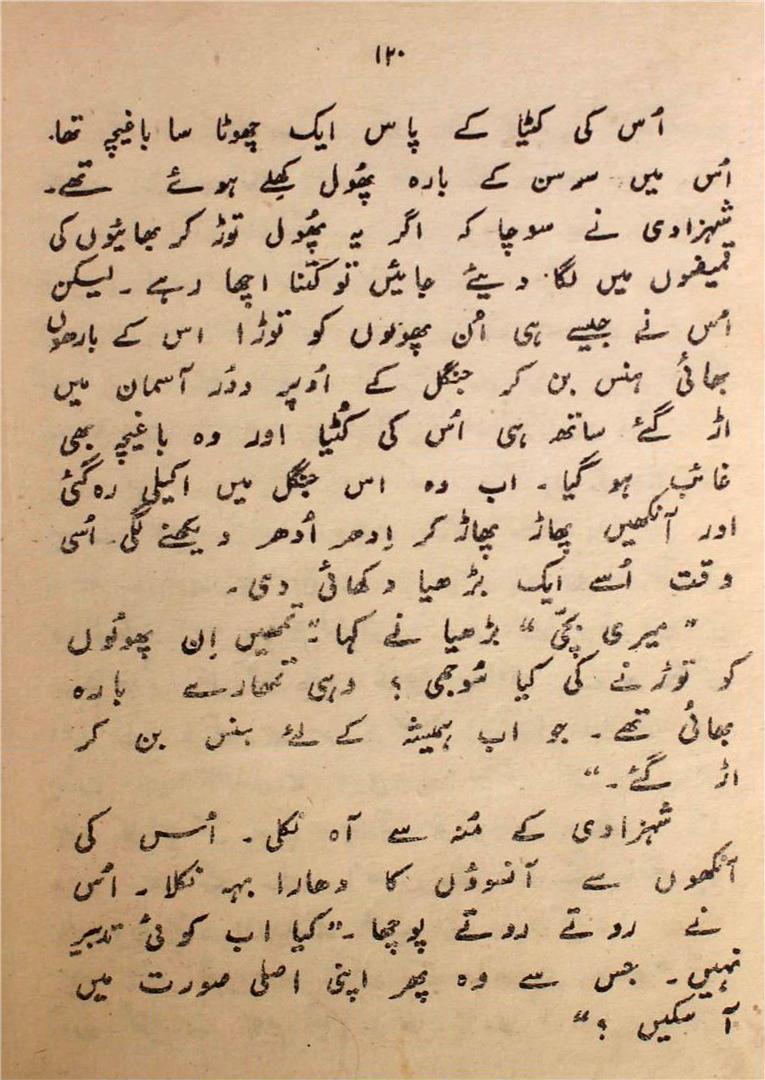 ۱۲۰
اُس کی کٹیا کے پاس ایک چھوٹا سا باغیچہ تھا۔
اُس میں سوسن کے بارہ پھُول کھِلے ہوئے تھے۔
شہزادی نے سوچا کہ اگر یہ پھُول توڑ کر بھائیوں کی
قمیضوں میں لگا دیئے جائیں تو کتنا اچھا رہے۔ لیکن
اُس نے جیسے ہی اُن پھولوں کو توڑا اس کے بارھوں
بھائی ہنس بن کر جنگل کے اُوپر دُور آسمان میں
اڑ گئے ساتھ ہی اُس کی کُٹیا اور وہ باغیچہ بھی
غائب ہو گیا۔ اب وہ اس جنگل میں اکیلی رہ گئی
اور آنکھیں پھاڑ پھاڑ کر اِدھر اُدھر دیکھنے لگی۔ اُسی
وقت اُسے ایک بڑھیا دکھائی دی۔
”میری بچّی“ بڑھیا نے کہا :”تمھیں اِن پھولوں
کو توڑنے کی کیا سُوجھی ؟ وہی تمھارے بارہ
بھائی تھے۔ جو اب ہمیشہ کے لئے ہنس بن کر
اڑ گئے۔“
شہزادی کے مُنہ سے آہ نکلی۔ اُس کی
آنکھوں سے آنسوؤں کا دھارا بہہ نکلا۔ اُس
نے روتے روتے پوچھا۔”کیا اب کوئی تدبیر
نہیں۔ جس سے وہ پھر اپنی اصلی صورت میں
آ سکیں ؟“